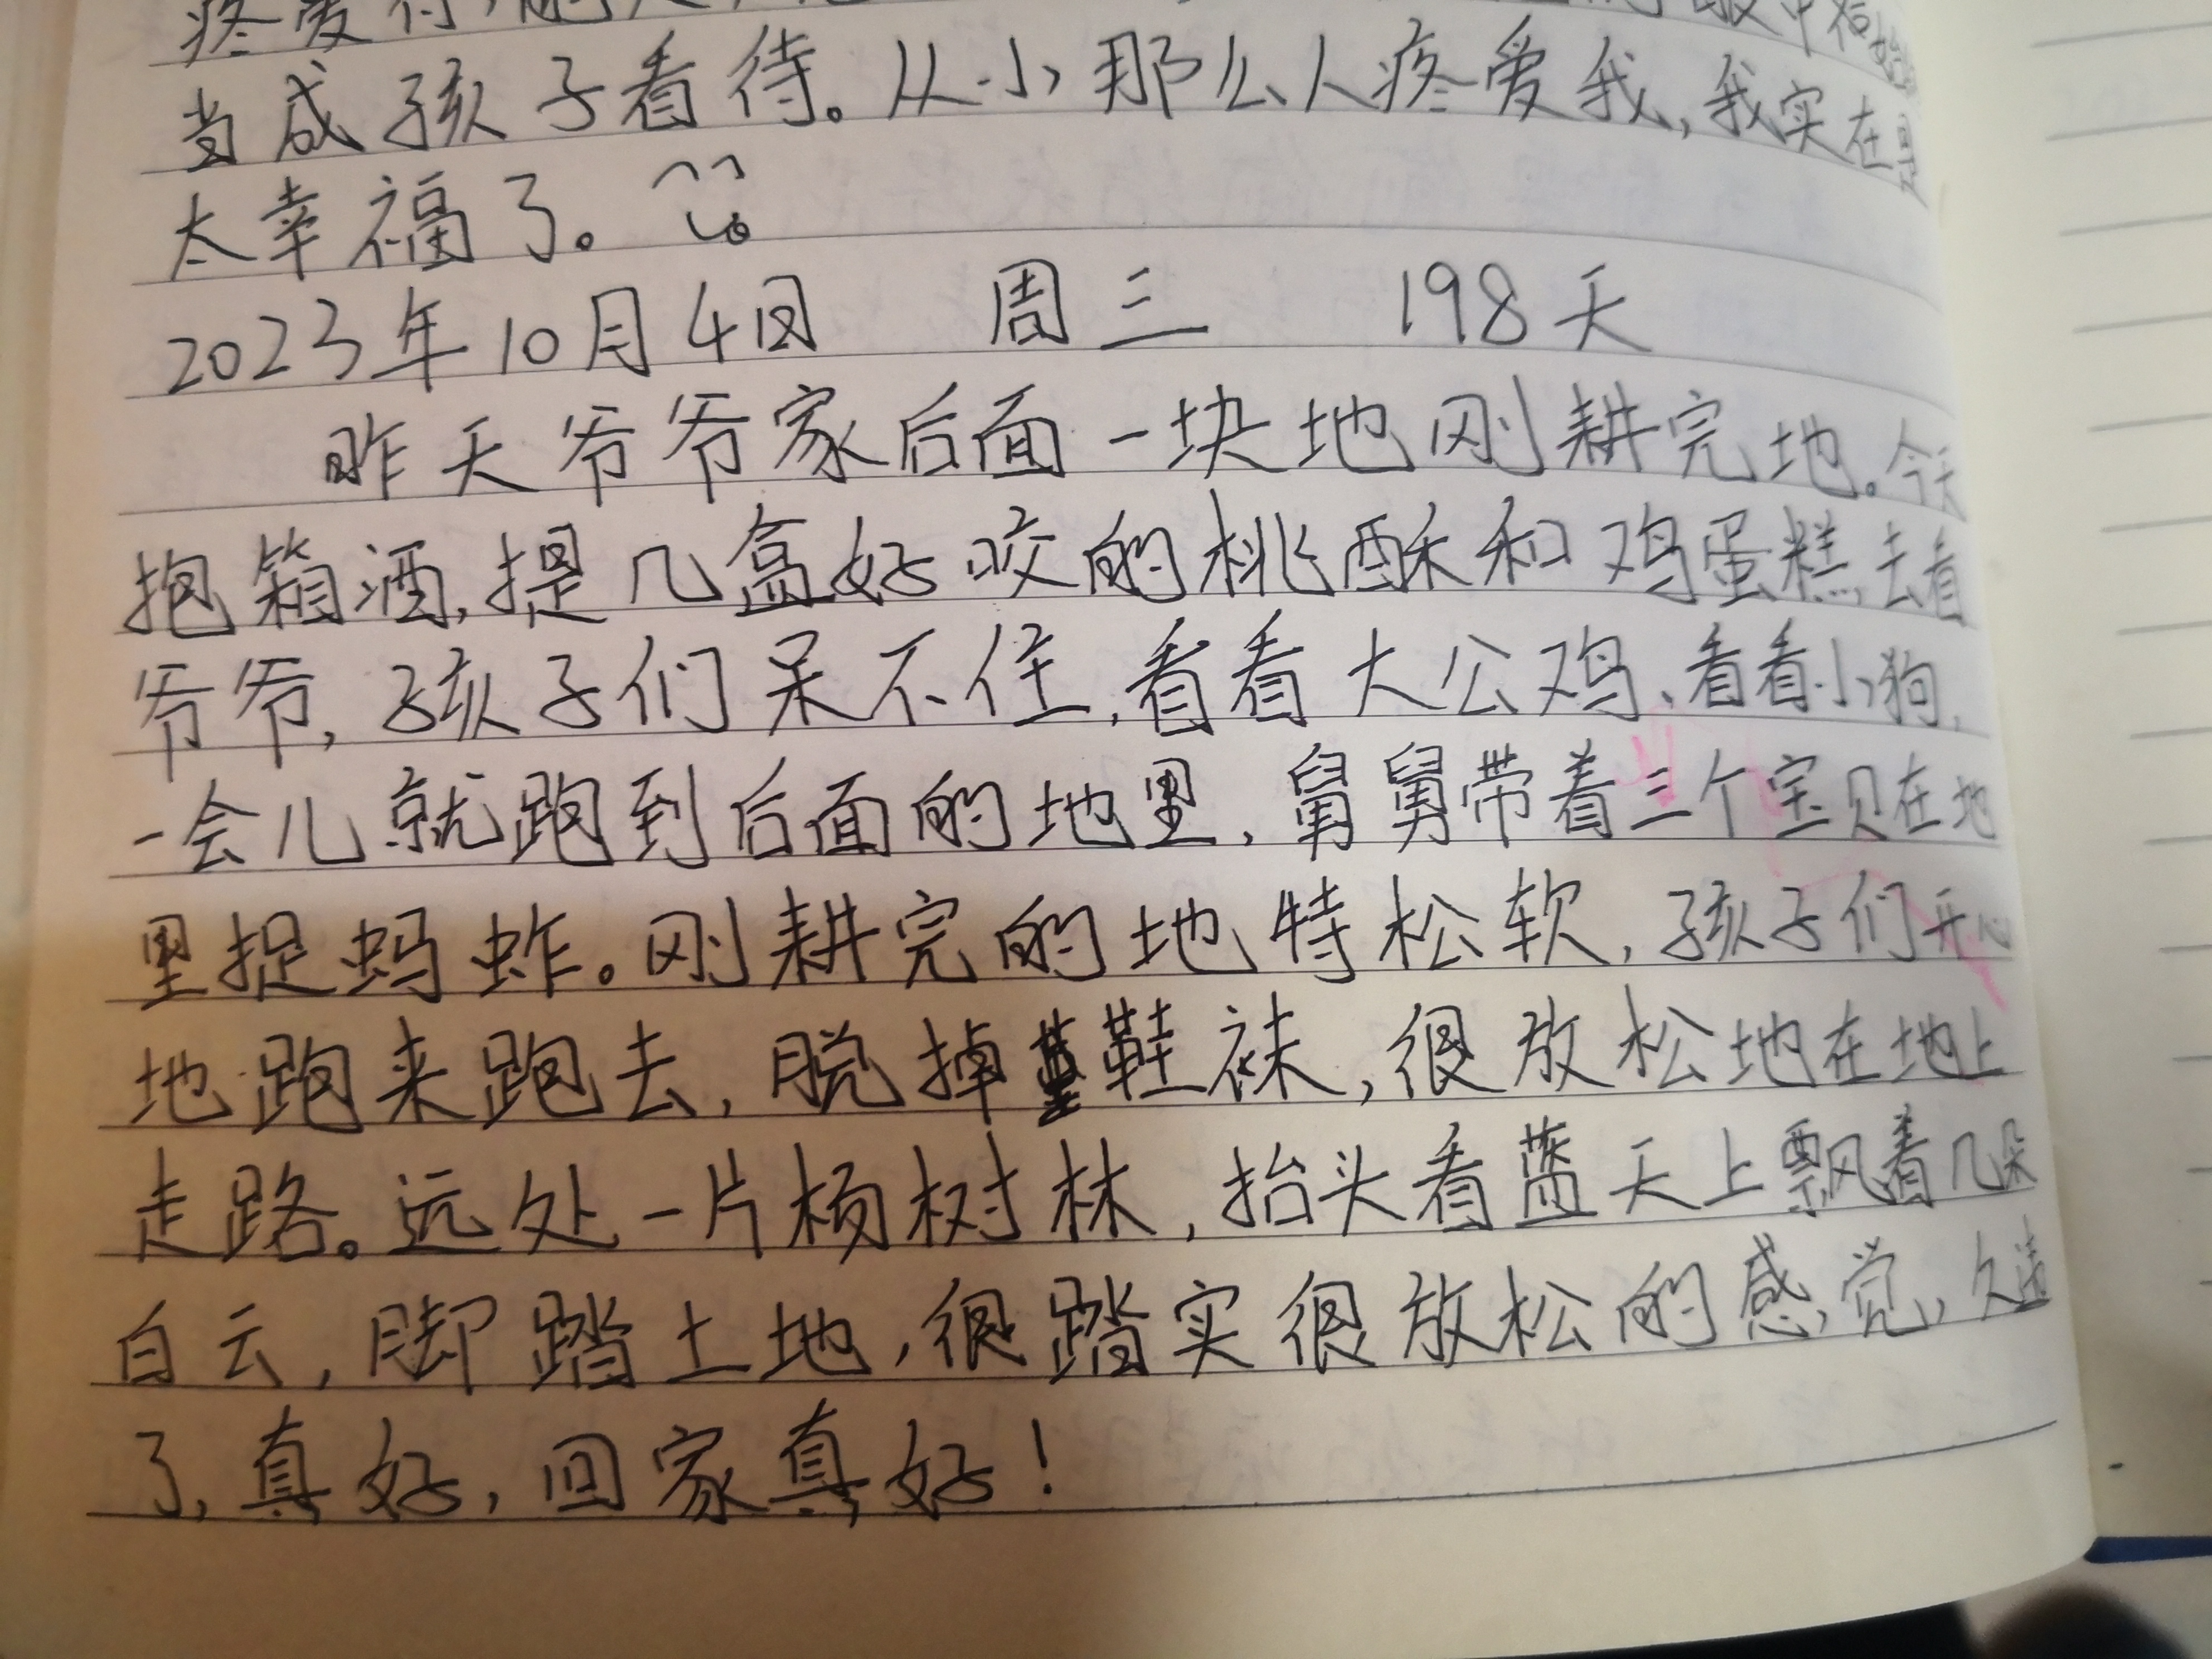 当成孩子看待。从小那么人疼爱我,我实在
太幸福了。
2023年10月4日 周三 198天
昨天爷爷家后面一块地刚耕完地。今天
抱箱酒,提几盒好咬的桃酥和鸡蛋糕去看
爷爷,孩子们呆不住,看看大公鸡、看看小狗,
一会儿就跑到后面的地里,舅舅带着三个宝贝在地
里捉蚂蚱。刚耕完的地特松软,孩子们开心
地跑来跑去,脱掉鞋袜,很放松地在地上
走路。远处一片杨树林,抬头看蓝天上飘着几朵
白云,脚踏土地,很踏实很放松的感觉,久违
了,真好,回家真好!